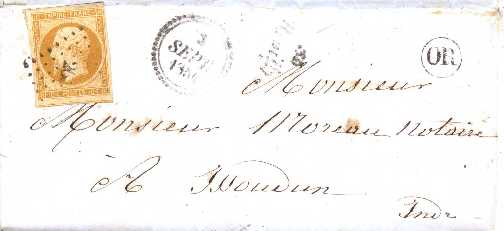 EMPIRE FRANC
3
SEPT
OR
Monsieur
Monsieur Moreau Notaire
A Issoudun
Indre